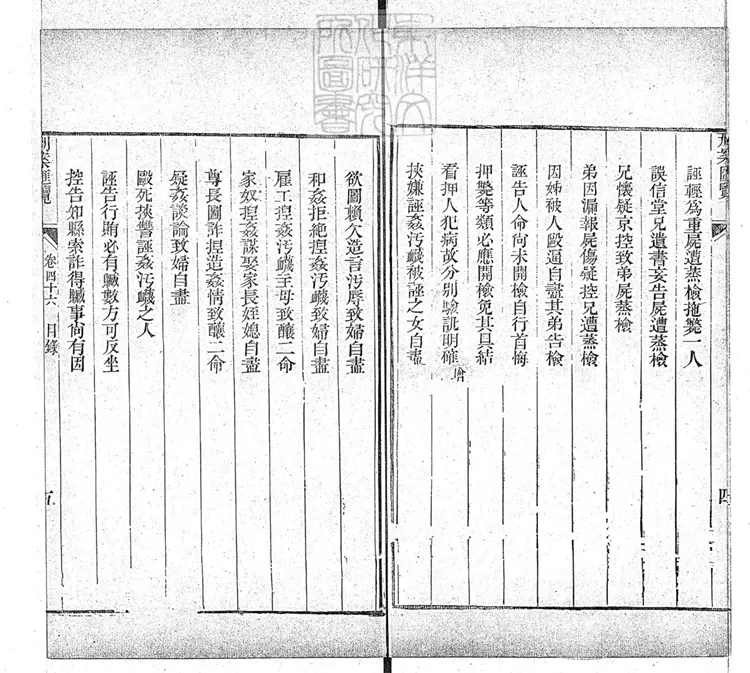 誣輕爲重屍遭蒸檢拖斃一人
誤信堂兄遺書妄告屍遭蒸檢
兄懷疑京控致弟屍蒸檢
弟因漏報屍傷疑控兄遭蒸檢
因姊被人毆逼自盡其弟告檢
誣告人命尙未開檢自行首悔
押斃等類必應開檢免其具結
看押人犯病故分別驗訊明確 增
挾嫌誣姦汚衊被誣之女自盡
四
欲圖賴欠造言汚辱致婦自盡
和姦拒絕揑姦汚衊致婦自盡
雇工揑姦汚衊主母致釀二命
家奴揑姦謀娶家長姪媳自盡
尊長圖詐揑造姦情致釀二命
疑姦談論致婦自盡
毆死挾讐誣姦汚衊之人
誣告行賄必有贓數方可反坐
控告知縣索詐得贓事尙有因
刑案匯覽 卷四十六 目錄 五
東洋文化研究所圖書